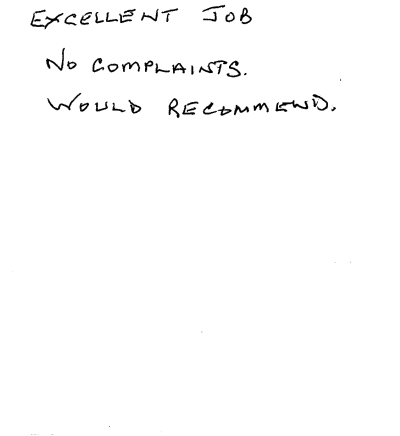 EXCELLENT JOB
NO COMPLAINTS.
WOULD RECOMMEND.